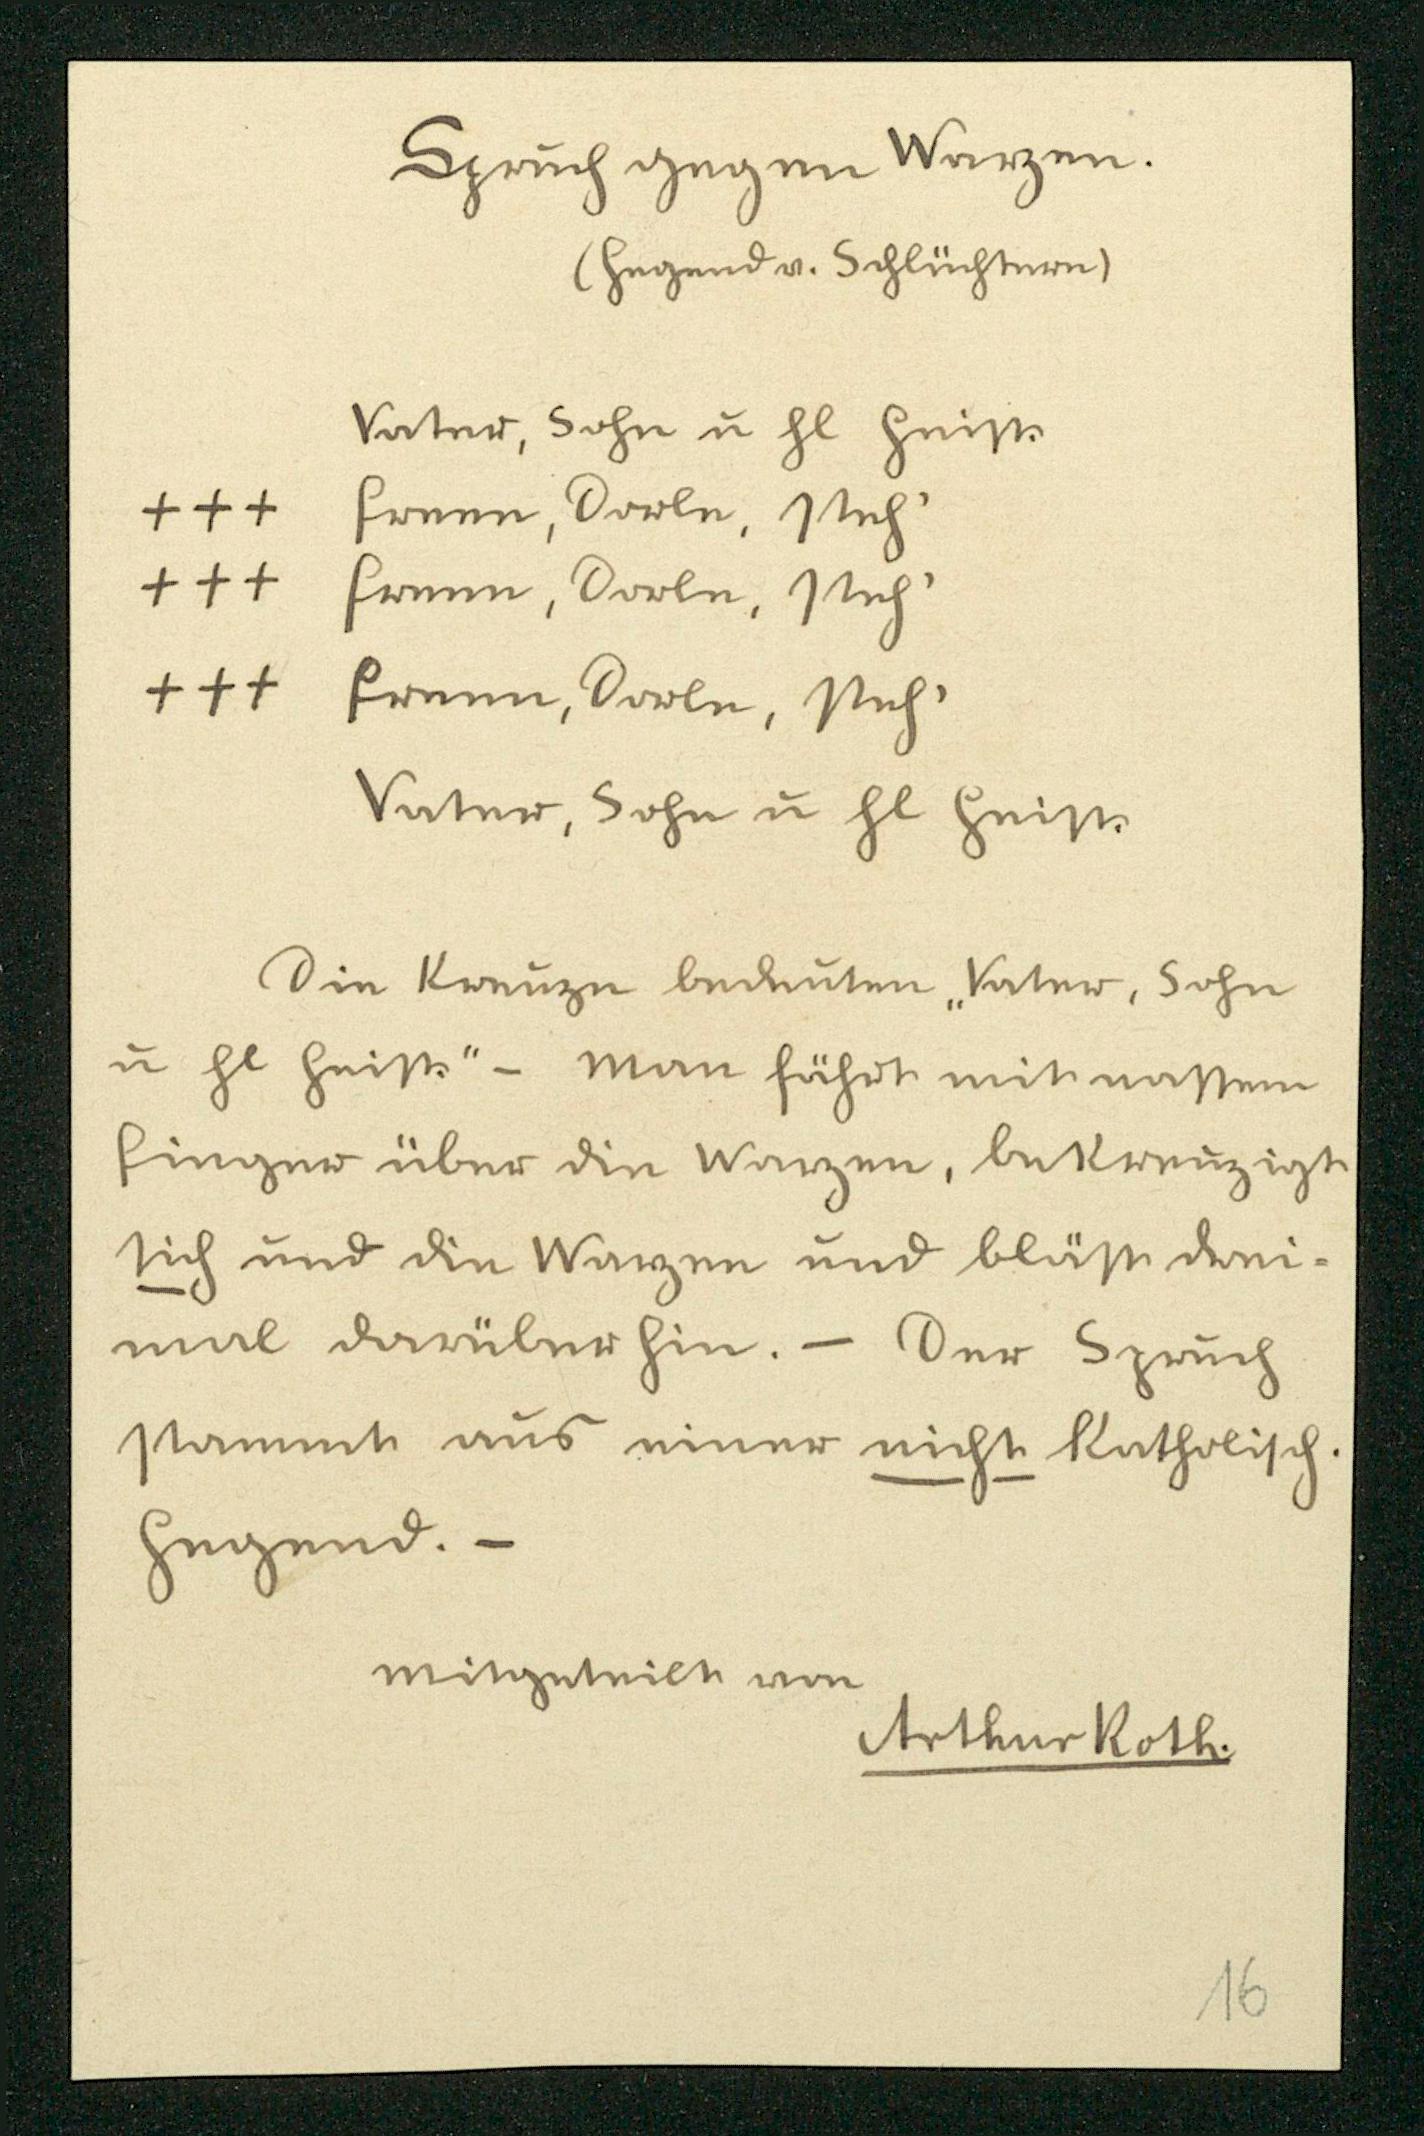 Spruch gegen Warzen.
(Gegend v. Schlüchtern)
Vater, Sohn u hl Geist
+++ Frene, Dorle, stech'
+++ Frene, Dorle, stech'
+++ Frene, Dorle, stech'
Vater, Sohn u hl Geist
Die Kreuze bedeuten „Vater, Sohn
u hl Geist" – Man fährt mit nassem
Finger über die Warzen, bekreuzigt
sich und die Warzen und bläst drei-
mal darüber hin. – Der Spruch
stammt aus einer nicht katholisch.
Gegend. –
mitgeteilt von
Arthur Roth.
16